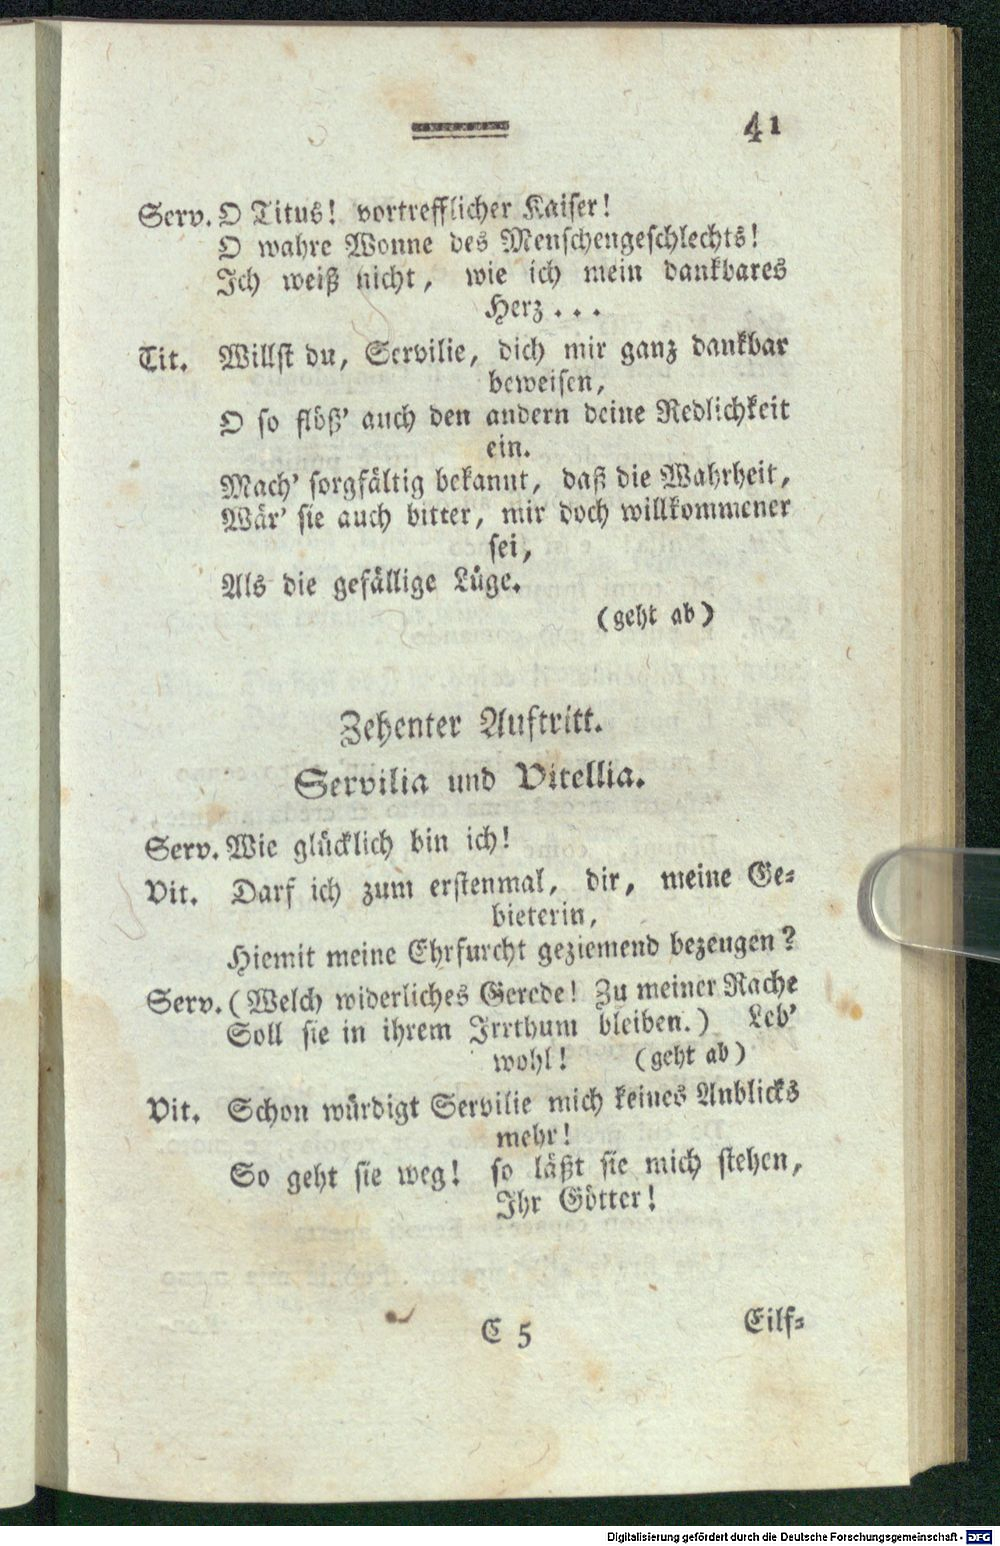 41
Serv. O Titus! vortrefflicher Kaiser!
O wahre Wonne des Menschengeschlechts!
Ich weiß nicht, wie ich mein dankbares
Herz...
Tit. Willst du, Servilie, dich mir ganz dankbar
beweisen,
O so flöß' auch den andern deine Redlichkeit
ein.
Mach' sorgfältig bekannt, daß die Wahrheit,
Wär' sie auch bitter, mir doch willkommener
sei,
Als die gefällige Lüge.
(geht ab)
Zehenter Auftritt.
Servilia und Vitellia.
Serv. Wie glücklich bin ich!
Vit. Darf ich zum erstenmal, dir, meine Ge-
bieterin,
Hiemit meine Ehrfurcht geziemend bezeugen?
Serv. (Welch widerliches Gerede! Zu meiner Rache
Soll sie in ihrem Irrthum bleiben.) Leb'
wohl! (geht ab)
Vit. Schon würdigt Servilie mich keines Anblicks
mehr!
So geht sie weg! so läßt sie mich stehen,
Ihr Götter!
C 5 Eilf-
Digitalisierung gefördert durch die Deutsche Forschungsgemeinschaft - DFG